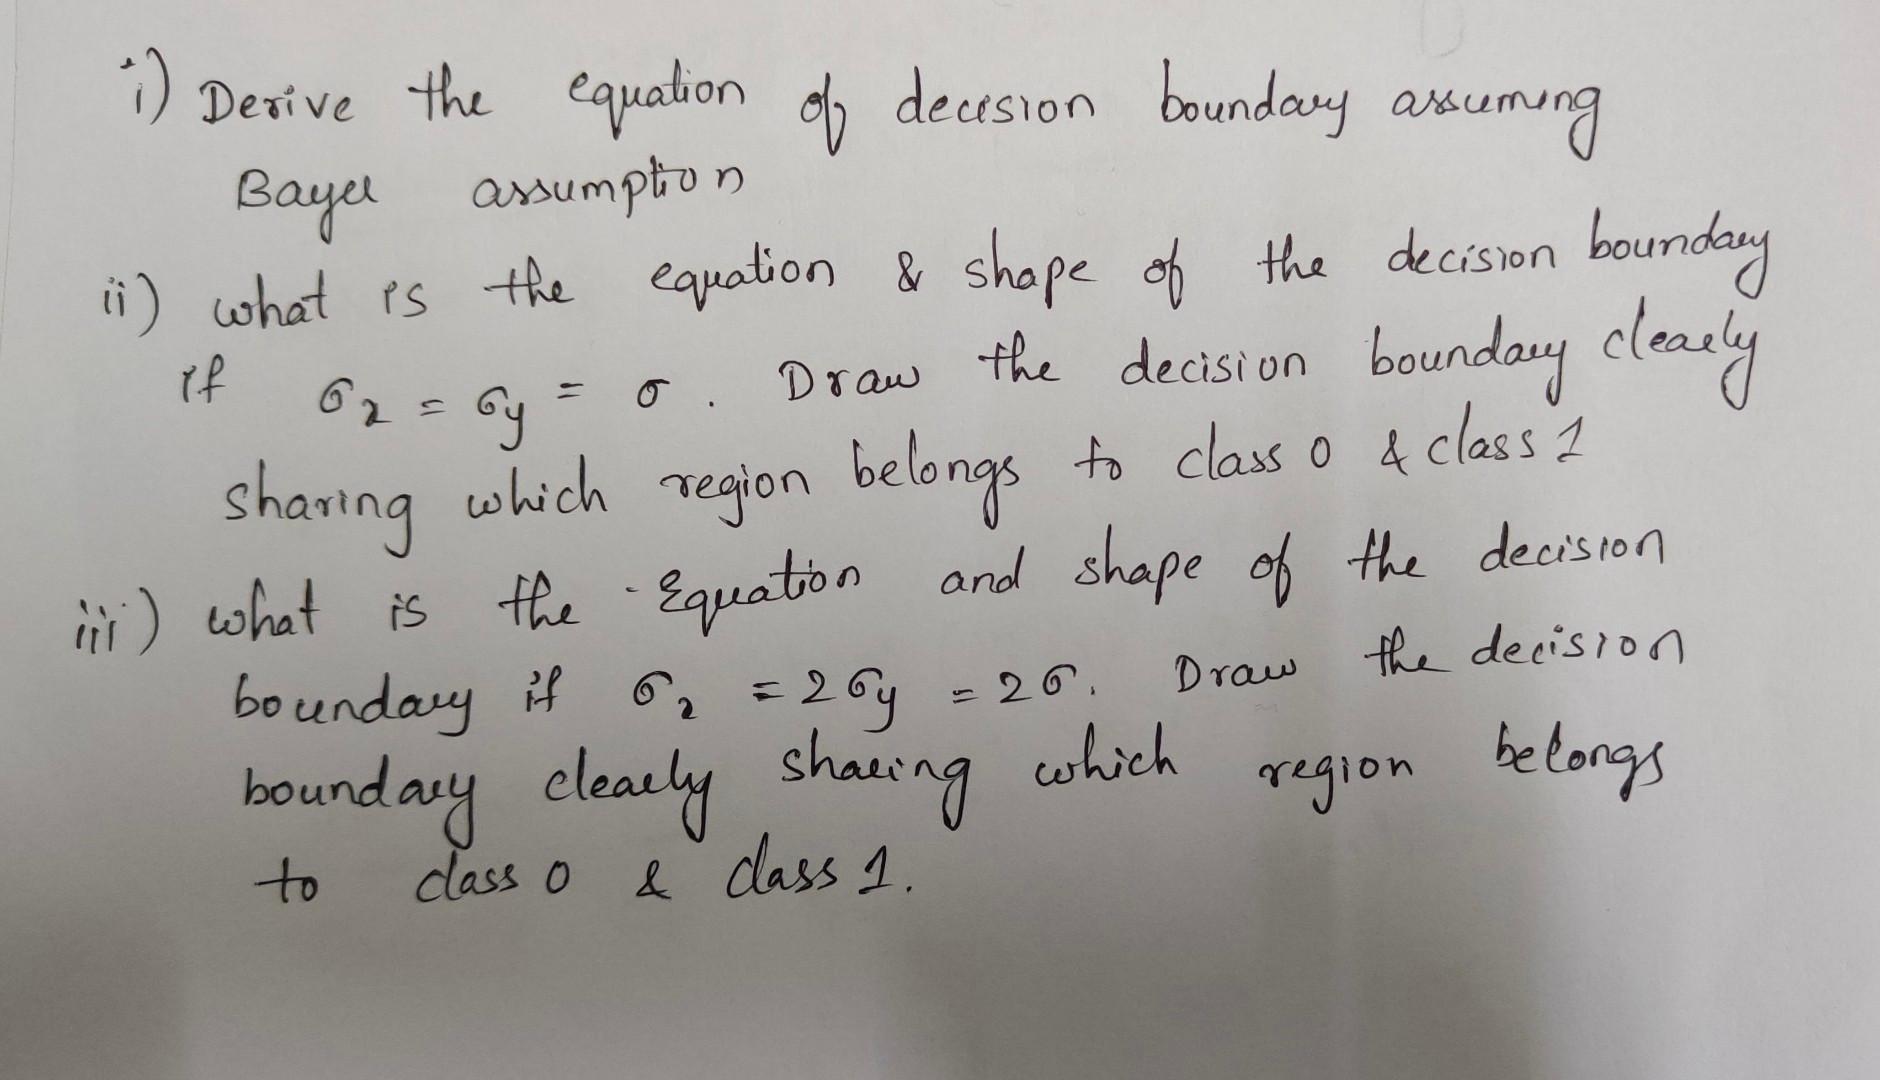 i) Derive the equation of decision boundary assuming
Bayes assumption
ii) what is the equation & shape of the decision boundary
if σ₂ = σy = σ. Draw the decision boundary clearly
sharing which region belongs to class 0 & class 1
iii) what is the Equation and shape of the decision
boundary if σ₂ = 2σy = 2σ. Draw the decision
boundary clearly sharing which region belongs
to class 0 & class 1.